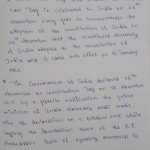 Law Day is celebrated in India on 26
November every year to commemorate the
adoption of the constitution of India on
26th November
of India adopted the constitution of
India and it came into effect on 26 January
1950.
* The Government of India declared 26th
November as Constitution Day on 19
by a gazette notification the prime
minister of India Narendra modi made
the declaration on 11 October 2015 while
laying the foundation stone of the B.R.
Ambedkar's Statue of equality memorial in